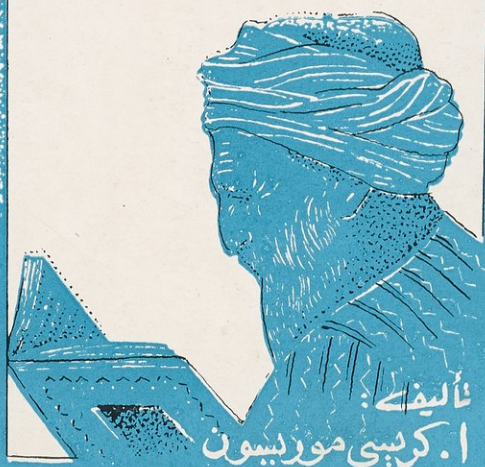 تأليف:
ا. كريسي موريسون